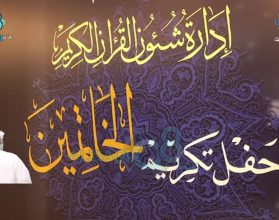 إدارة شئون القرآن الكريم
حفل تكريم الخاتمين